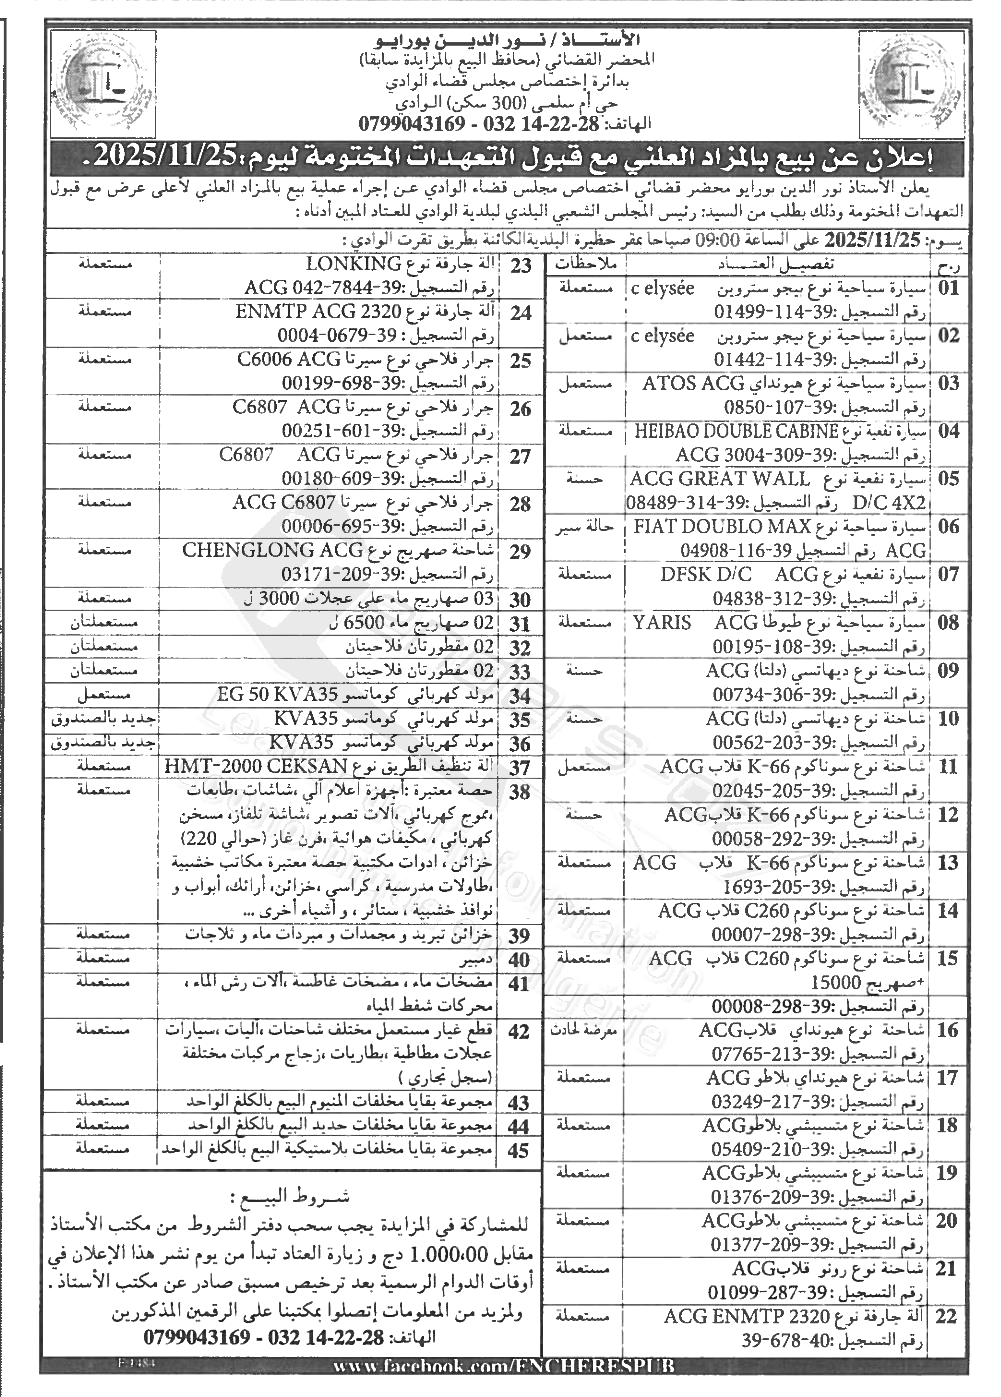 الأستــــاذ / نـور الديـن بورايـو
المحضر القضائي (محافظ البيع بالمزايدة سابقا)
بدائرة إختصاص مجلس قضاء الوادي
حي أم سلمى (300 سكن) الوادي
الهاتف: 28-22-14 032 - 0799043169
إعلان عن بيع بالمزاد العلني مع قبول التعهدات المختومة ليوم: 2025/11/25.
يعلن الأستاذ نور الدين بورايو محضر قضائي اختصاص مجلس قضاء الوادي عن إجراء عملية بيع بالمزاد العلني لأعلى عرض مع قبول
التعهدات المختومة وذلك بطلب من السيد: رئيس المجلس الشعبي البلدي لبلدية الوادي للعتاد المبين أدناه :
يـوم: 2025/11/25 على الساعة 09:00 صباحا بمقر حظيرة البلدية الكائنة بطريق تقرت الوادي :
ر.ح تفصيل العتـاد ملاحظات
01 سيارة سياحية نوع بيجو ستروين c elysée مستعملة
رقم التسجيل :39-114-01499
02 سيارة سياحية نوع بيجو ستروين c elysée مستعمل
رقم التسجيل :39-114-01442
03 سيارة سياحية نوع هيونداي ATOS ACG مستعمل
رقم التسجيل :39-107-0850
04 سيارة نفعية نوع HEIBAO DOUBLE CABINE مستعملة
رقم التسجيل :39-309-3004 ACG
05 سيارة نفعية نوع ACG GREAT WALL حسنة
D/C 4X2 رقم التسجيل :39-314-08489
06 سيارة سياحية نوع FIAT DOUBLO MAX حالة سير
ACG رقم التسجيل 39-116-04908
07 سيارة نفعية نوع DFSK D/C ACG مستعملة
رقم التسجيل :39-312-04838
08 سيارة سياحية نوع طيوطا YARIS ACG مستعملة
رقم التسجيل :39-108-00195
09 شاحنة نوع ديهاتسي (دلتا) ACG حسنة
رقم التسجيل :39-306-00734
10 شاحنة نوع ديهاتسي (دلتا) ACG حسنة
رقم التسجيل :39-203-00562
11 شاحنة نوع سوناكوم K-66 قلاب ACG مستعمل
رقم التسجيل :39-205-02045
12 شاحنة نوع سوناكوم K-66 قلاب ACG حسنة
رقم التسجيل :39-292-00058
13 شاحنة نوع سوناكوم K-66 قلاب ACG مستعملة
رقم التسجيل :39-205-1693
14 شاحنة نوع سوناكوم C260 قلاب ACG مستعملة
رقم التسجيل :39-298-00007
15 شاحنة نوع سوناكوم C260 قلاب ACG مستعملة
+صهريج 15000
رقم التسجيل :39-298-00008
16 شاحنة نوع هيونداي قلاب ACG معرضة لحادث
رقم التسجيل :39-213-07765
17 شاحنة نوع هيونداي بلاطو ACG مستعملة
رقم التسجيل :39-217-03249
18 شاحنة نوع متسيبشي بلاطو ACG مستعملة
رقم التسجيل :39-210-05409
19 شاحنة نوع متسيبشي بلاطو ACG مستعملة
رقم التسجيل :39-209-01376
20 شاحنة نوع متسيبشي بلاطو ACG مستعملة
رقم التسجيل :39-209-01377
21 شاحنة نوع رونو قلاب ACG مستعملة
رقم التسجيل :39-287-01099
22 آلة جارفة نوع ACG ENMTP 2320 مستعملة
رقم التسجيل :40-678-39
23 آلة جارفة نوع LONKING مستعملة
رقم التسجيل :39-7844-042 ACG
24 آلة جارفة نوع ENMTP ACG 2320 مستعملة
رقم التسجيل :39-0679-0004
25 جرار فلاحي نوع سيرتا C6006 ACG مستعملة
رقم التسجيل :39-698-00199
26 جرار فلاحي نوع سيرتا C6807 ACG مستعملة
رقم التسجيل :39-601-00251
27 جرار فلاحي نوع سيرتا C6807 ACG مستعملة
رقم التسجيل :39-609-00180
28 جرار فلاحي نوع سيرتا ACG C6807 مستعملة
رقم التسجيل :39-695-00006
29 شاحنة صهريج نوع CHENGLONG ACG مستعملة
رقم التسجيل :39-209-03171
30 03 صهاريج ماء على عجلات 3000 ل مستعملة
31 02 صهاريج ماء 6500 ل مستعملتان
32 02 مقطورتان فلاحيتان مستعملتان
33 02 مقطورتان فلاحيتان مستعملتان
34 مولد كهربائي كوماتسو EG 50 KVA35 مستعمل
35 مولد كهربائي كوماتسو KVA35 جديد بالصندوق
36 مولد كهربائي كوماتسو KVA35 جديد بالصندوق
37 آلة تنظيف الطريق نوع HMT-2000 CEKSAN مستعملة
38 حصة معتبرة :أجهزة اعلام آلي ،شاشات ،طابعات مستعملة
،موج كهربائي ،آلات تصوير ،شاشة تلفاز، مسخن
كهربائي ، مكيفات هوائية، فرن غاز (حوالي 220)
خزائن ، ادوات مكتبية حصة معتبرة مكاتب خشبية
،طاولات مدرسية ، كراسي ،خزائن، أرائك، أبواب و
نوافذ خشبية ، ستائر ، و أشياء أخرى ...
39 خزائن تبريد و مجمدات و مبردات ماء و ثلاجات مستعملة
40 دمبير مستعملة
41 مضخات ماء ، مضخات غاطسة ،آلات رش الماء ، مستعملة
محركات شفط المياه
42 قطع غيار مستعمل مختلف شاحنات ،آليات ،سيارات مستعملة
عجلات مطاطية ،بطاريات ،زجاج مركبات مختلفة
(سجل تجاري )
43 مجموعة بقايا مخلفات المنيوم البيع بالكلغ الواحد مستعملة
44 مجموعة بقايا مخلفات حديد البيع بالكلغ الواحد مستعملة
45 مجموعة بقايا مخلفات بلاستيكية البيع بالكلغ الواحد مستعملة
شـروط البيـع :
للمشاركة في المزايدة يجب سحب دفتر الشروط من مكتب الأستاذ
مقابل 1.000،00 دج و زيارة العتاد تبدأ من يوم نشر هذا الإعلان في
أوقات الدوام الرسمية بعد ترخيص مسبق صادر عن مكتب الأستاذ .
ولمزيد من المعلومات إتصلوا بمكتبنا على الرقمين المذكورين
الهاتف: 28-22-14 032 - 0799043169
F 1484
www.facebook.com/ENCHERESPUB